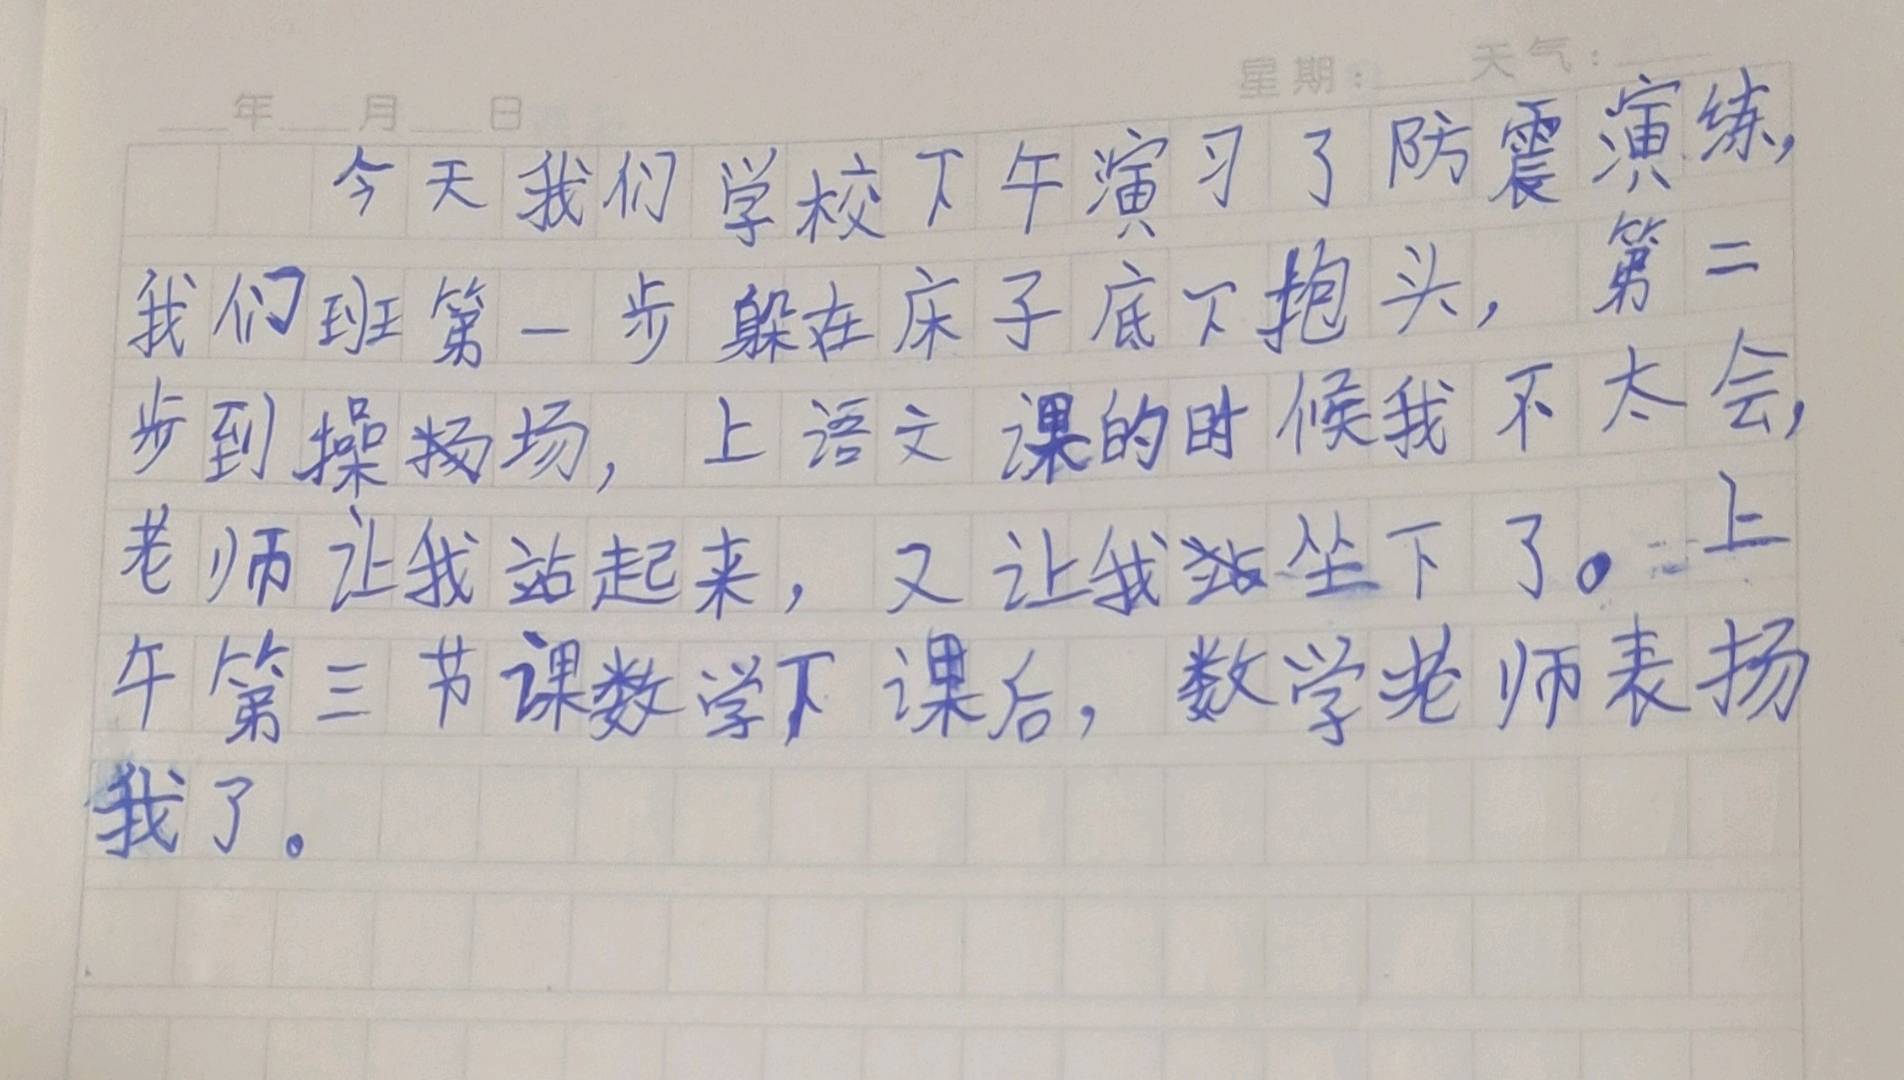 年 月 日 星期： 天气：
今天我们学校下午演习了防震演练，
我们班第一步躲在床子底下抱头，第二
步到操场，上语文课的时候我不太会，
老师让我站起来，又让我坐下了。上
午第三节课数学下课后，数学老师表扬
我了。